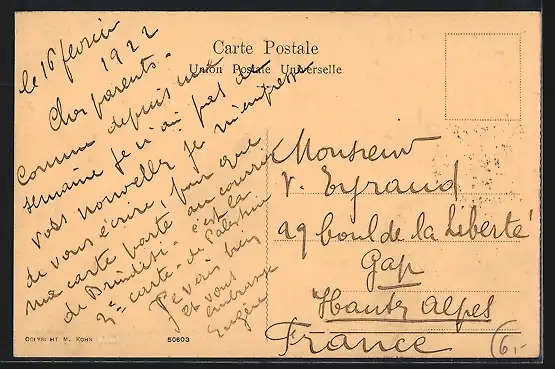 Carte Postale
Union Postale Universelle
le 16 fevrier
1922
Cher parents -
Comme depuis une
semaine je n'ai pas de
vos nouvelles je m'empresse
de vous écrire, pour que
ma carte parte au courrier
de Brindisi - c'est la
2e carte - de Palestine
Je vais bien
et vous
embrasse
Eugène
Monsieur
V. Eyraud
29 boul de la Liberté
Gap
Hautes Alpes
France
COPYRIGHT M. KOHN
50603
6,-